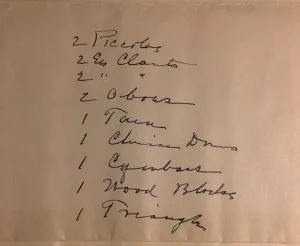 2 Piccolos
2 Eb Clarts
2 " "
2 Oboes
1
1 Chinese Drum
1 Cymbals
1 Wood Blocks
1 Triangle